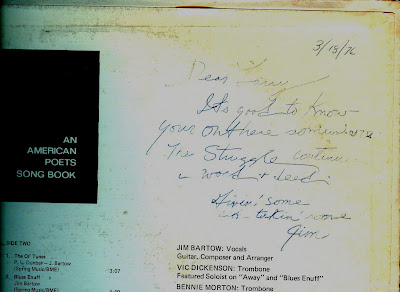 3/15/76
Dear
It's good to know
your out here somewhere
The Struggle continue
word & deed.
Givin' some
takin' some
Jim
AN
AMERICAN
POETS
SONG BOOK
SIDE TWO
1. The Ol' Tunes
P. L. Dunbar - J. Bartow
(Spring Music/BMI) 3:07
2. Blues Enuff
Jim Bartow
(Spring Music/BMI)
JIM BARTOW: Vocals
Guitar, Composer and Arranger
VIC DICKENSON: Trombone
Featured Soloist on "Away" and "Blues Enuff"
BENNIE MORTON: Trombone